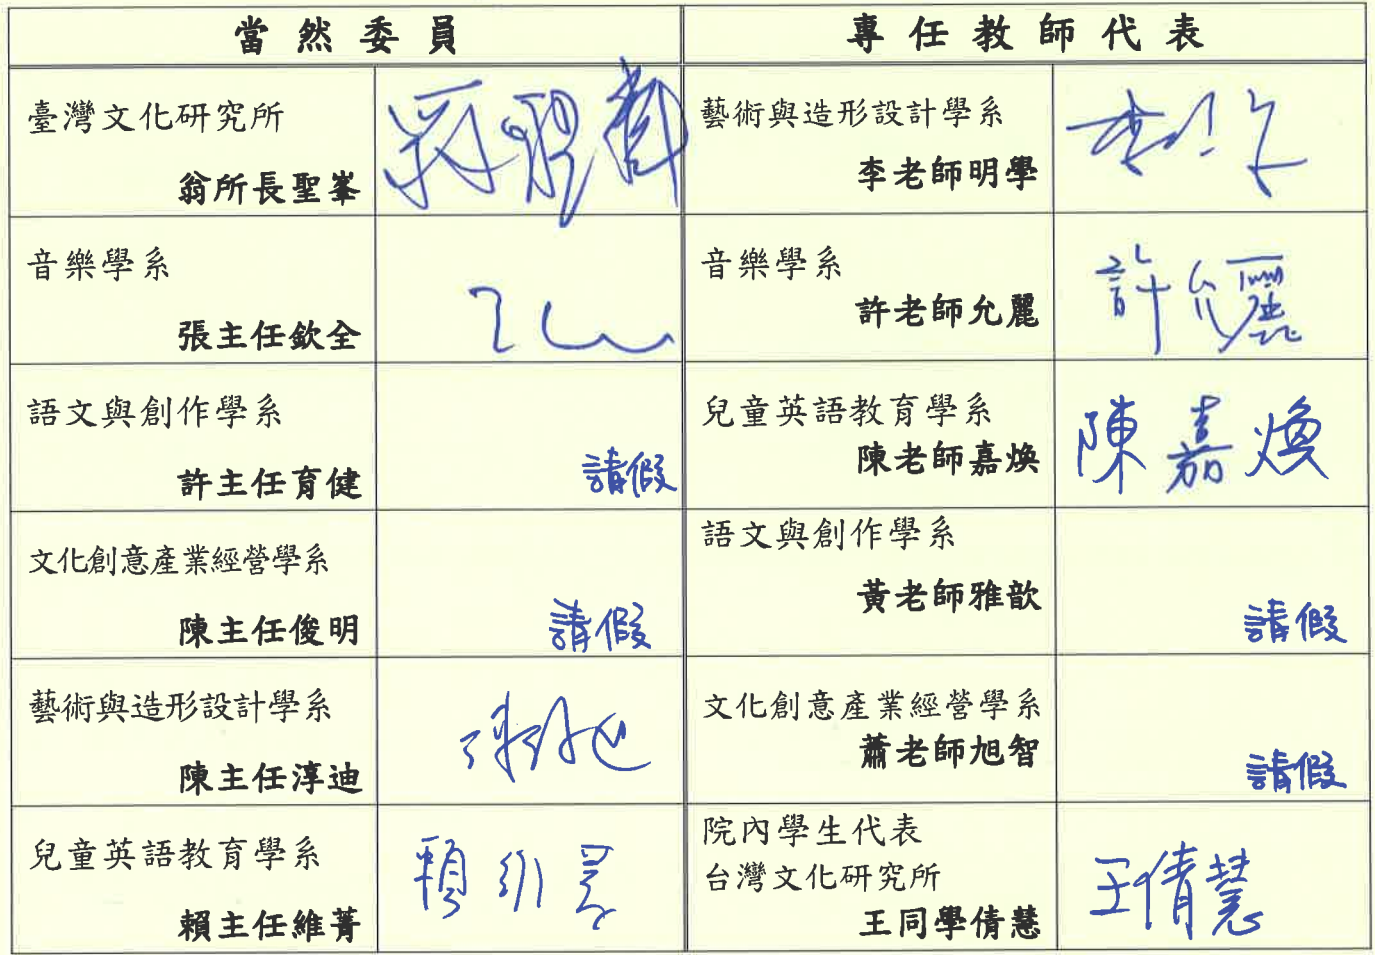 當然委員
專任教師代表
臺灣文化研究所
翁所長聖峯
藝術與造形設計學系
李老師明學
音樂學系
張主任欽全
音樂學系
許老師允麗
許允麗
語文與創作學系
許主任育健
請假
兒童英語教育學系
陳老師嘉煥
陳嘉煥
文化創意產業經營學系
陳主任俊明
請假
語文與創作學系
黃老師雅歆
請假
藝術與造形設計學系
陳主任淳迪
文化創意產業經營學系
蕭老師旭智
請假
兒童英語教育學系
賴主任維菁
賴維菁
院內學生代表
台灣文化研究所
王同學倩慧
王倩慧